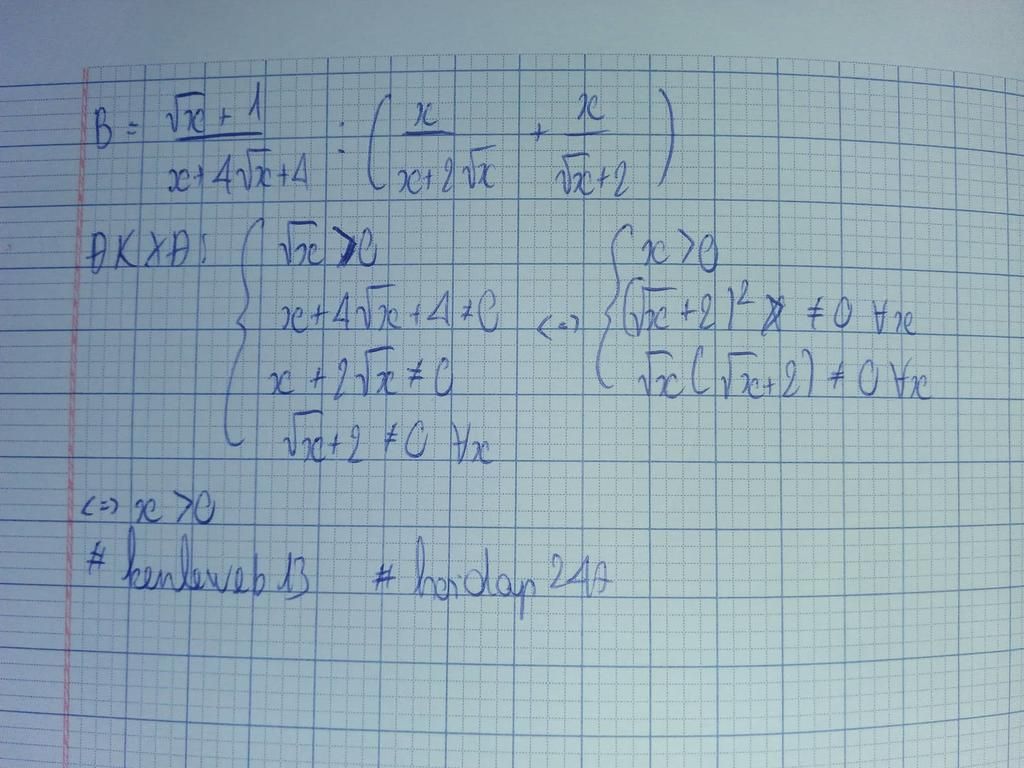 B = \frac{\sqrt{x} + 1}{x + 4\sqrt{x} + 4} : \left( \frac{x}{x + 2\sqrt{x}} + \frac{x}{\sqrt{x} + 2} \right)
ĐKXĐ: \begin{cases} \sqrt{x} > 0 \\ x + 4\sqrt{x} + 4 \neq 0 \\ x + 2\sqrt{x} \neq 0 \\ \sqrt{x} + 2 \neq 0 \ \forall x \end{cases} <=> \begin{cases} x > 0 \\ (\sqrt{x} + 2)^2 \neq 0 \ \forall x \\ \sqrt{x}(\sqrt{x} + 2) \neq 0 \ \forall x \end{cases}
<=> x > 0